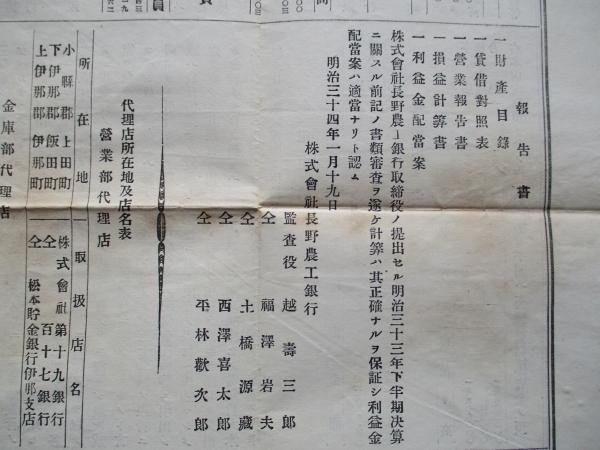 報告書
一財產目錄
一貸借對照表
一營業報告書
一損益計算書
一利益金配當案
株式會社長野農工銀行取締役ノ提出セル明治三十三年下半期決算
ニ關スル前記ノ書類審査ヲ遂ケ計算ハ其正確ナルヲ保証シ利益金
配當案ハ適當ナリト認ム
明治三十四年一月十九日
株式會社長野農工銀行
監査役 越壽三郎
仝 福澤岩夫
仝 土橋源藏
仝 西澤喜太郎
仝 平林歡次郎
代理店所在地及店名表
營業部代理店
所在地 取扱店名
小縣郡上田町 株式會社第十九銀行
下伊那郡飯田町 仝 百十七銀行
上伊那郡伊那町 仝 松本貯金銀行伊那支店
金庫部代理店